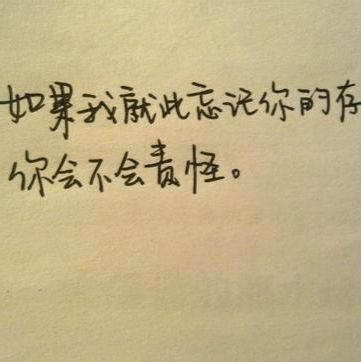 如果我就此忘记你的存
你会不会责怪。